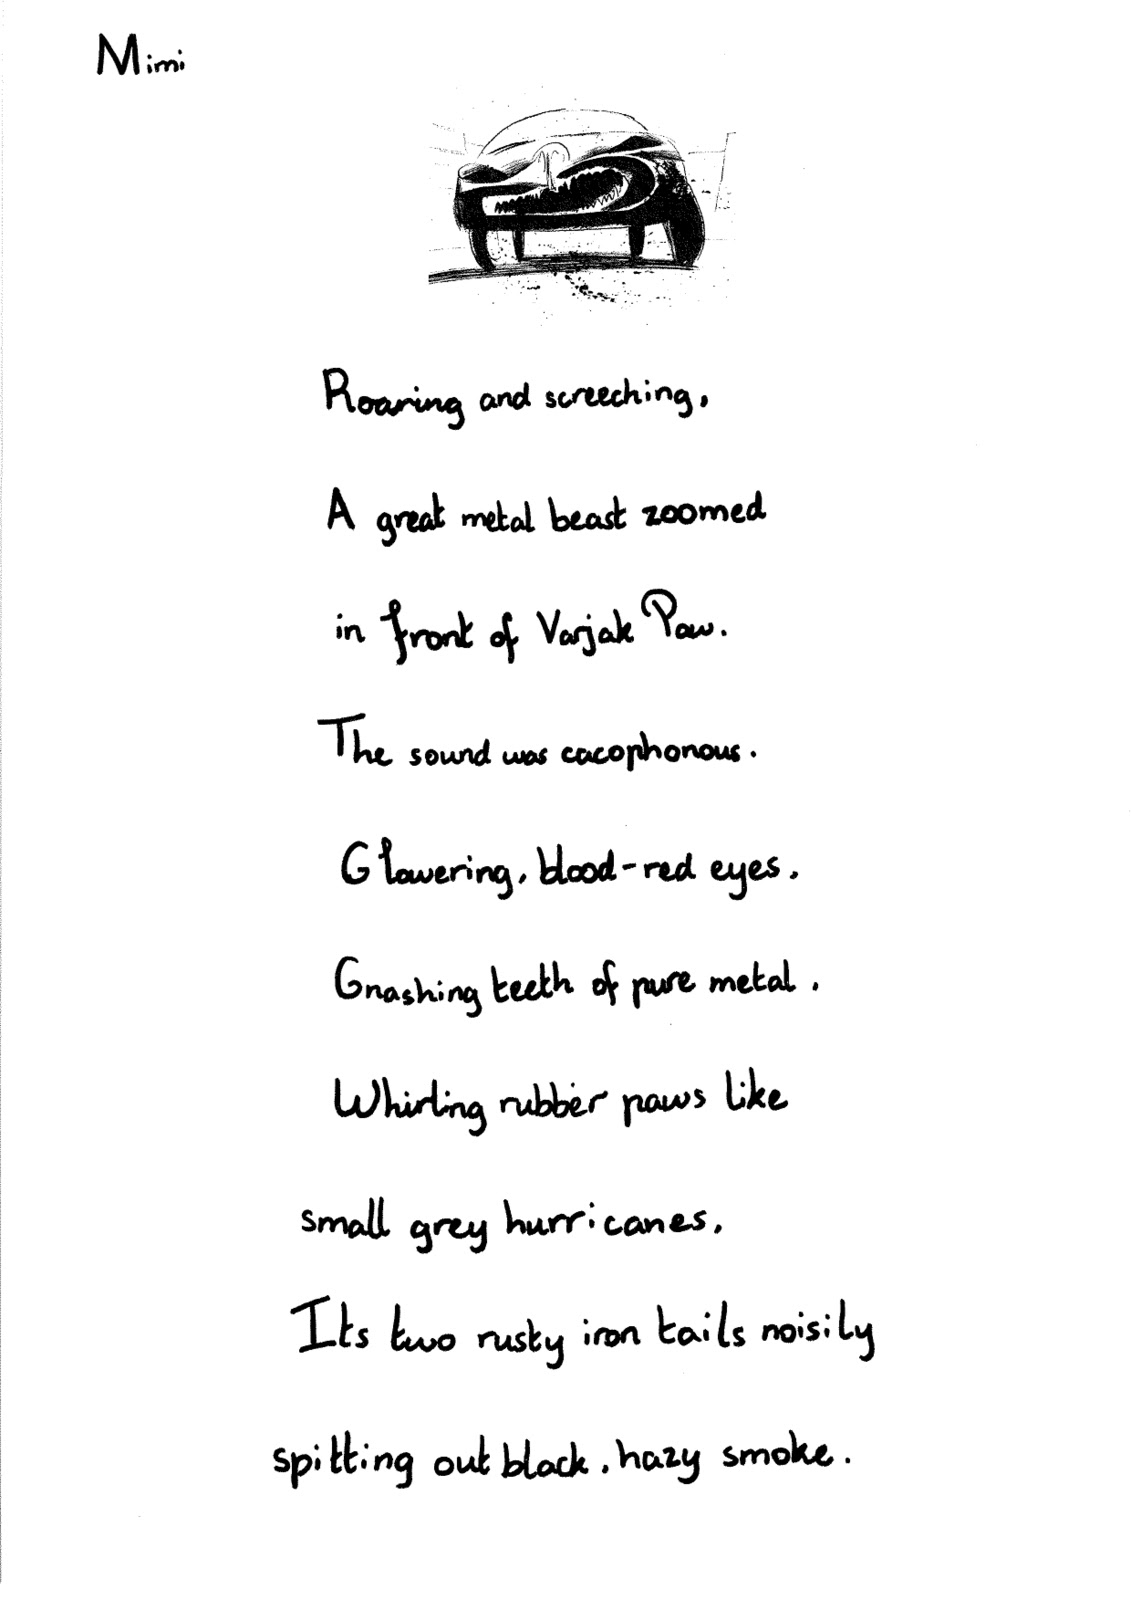 Mimi
Roaring and screeching,
A great metal beast zoomed
in front of Varjak Paw.
The sound was cacophonous.
Glowering, blood-red eyes.
Gnashing teeth of pure metal.
Whirling rubber paws like
small grey hurricanes.
Its two rusty iron tails noisily
spitting out black, hazy smoke.